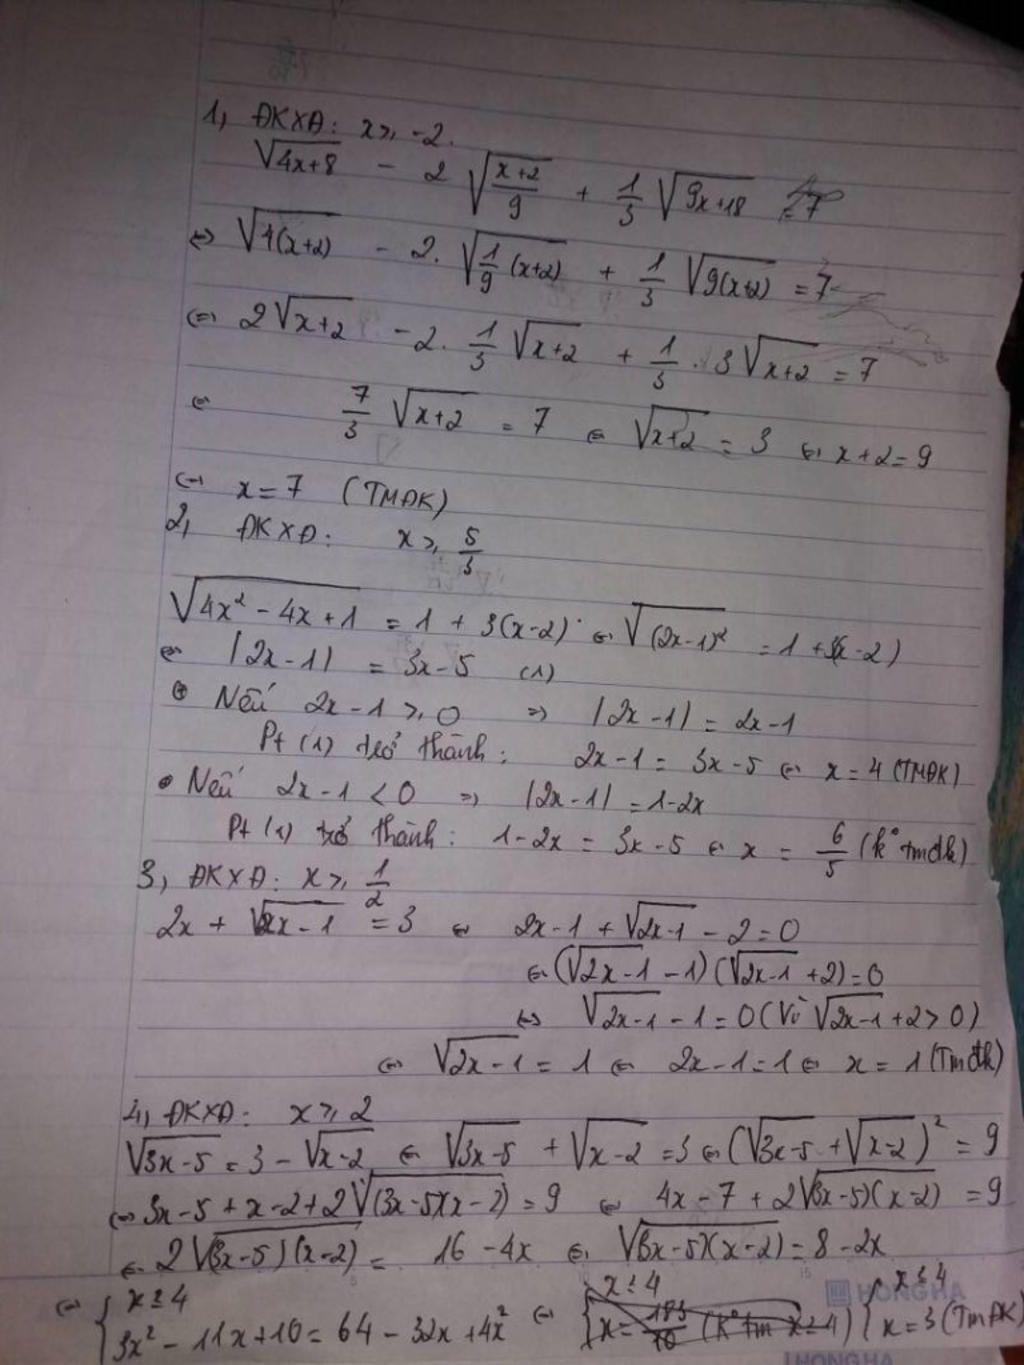 1, ĐKXĐ: x ≥ -2.
√(4x+8) - 2√((x+2)/9) + 1/3 √(9x+18) = 7
⇔ √(4(x+2)) - 2.√(1/9 (x+2)) + 1/3 √(9(x+2)) = 7
⇔ 2√(x+2) - 2. 1/3 √(x+2) + 1/3 . 3√(x+2) = 7
⇔ 7/3 √(x+2) = 7 ⇔ √(x+2) = 3 ⇔ x+2 = 9
⇔ x = 7 (TMĐK)
2, ĐKXĐ: x ≥ 5/3
√(4x² - 4x + 1) = 1 + 3(x-2) ⇔ √((2x-1)²) = 1 + 3(x-2)
⇔ |2x-1| = 3x-5 (1)
• Nếu 2x-1 ≥ 0 ⇒ |2x-1| = 2x-1
Pt (1) trở thành: 2x-1 = 3x-5 ⇔ x = 4 (TMĐK)
• Nếu 2x-1 < 0 ⇒ |2x-1| = 1-2x
Pt (1) trở thành: 1-2x = 3x-5 ⇔ x = 6/5 (k° tmđk)
3, ĐKXĐ: x ≥ 1/2
2x + √(2x-1) = 3 ⇔ 2x-1 + √(2x-1) - 2 = 0
⇔ (√(2x-1) - 1)(√(2x-1) + 2) = 0
⇔ √(2x-1) - 1 = 0 (Vì √(2x-1) + 2 > 0)
⇔ √(2x-1) = 1 ⇔ 2x-1 = 1 ⇔ x = 1 (Tmđk)
4, ĐKXĐ: x ≥ 2
√(3x-5) = 3 - √(x-2) ⇔ √(3x-5) + √(x-2) = 3 ⇔ (√(3x-5) + √(x-2))² = 9
⇔ 3x-5 + x-2 + 2√((3x-5)(x-2)) = 9 ⇔ 4x-7 + 2√((3x-5)(x-2)) = 9
⇔ 2√((3x-5)(x-2)) = 16 - 4x ⇔ √((3x-5)(x-2)) = 8 - 2x
⇔ { x ≤ 4 ; 3x² - 11x + 10 = 64 - 32x + 4x² ⇔ { x ≤ 4 ; x = 3 (TmĐK)
HONG HA
HONG HA